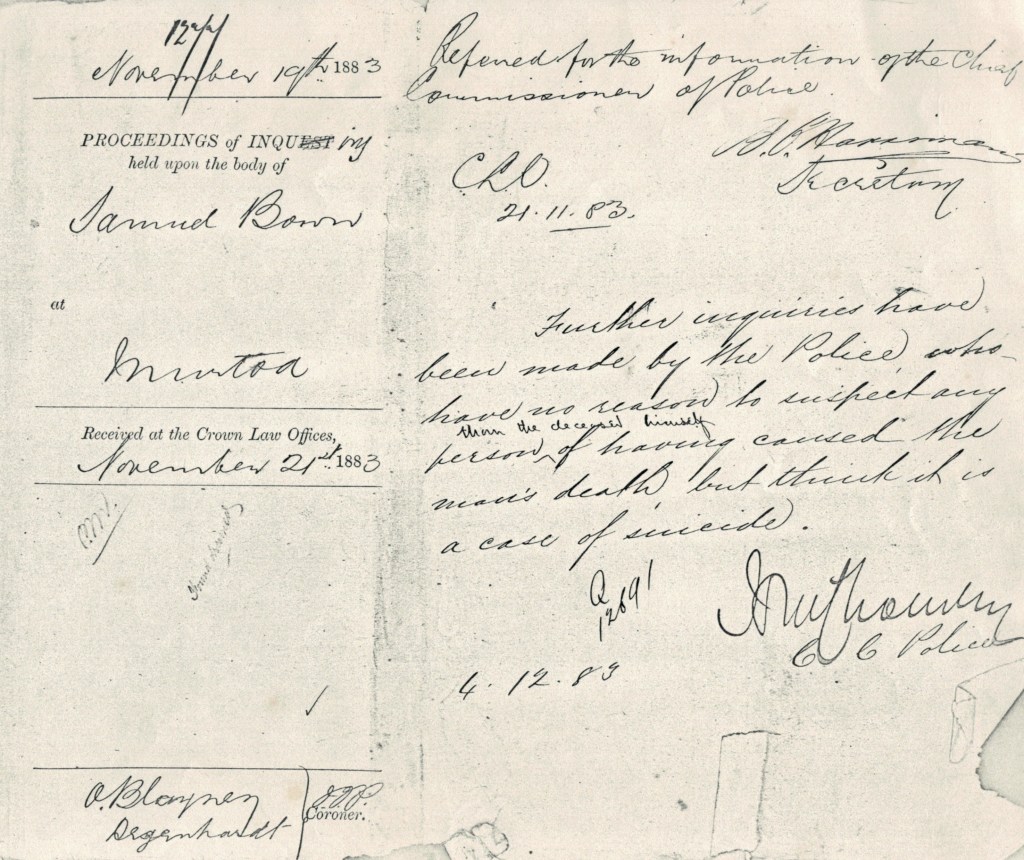 November 19th 1883
PROCEEDINGS of INQUEST iry
held upon the body of
Samuel Bown
at
Murtoa
Received at the Crown Law Offices,
November 21st 1883
O. Blayney
Degenhardt
J.P.
Coroner.
Referred for the information of the Chief
Commissioner of Police.
Secretary
CLO.
21.11.83.
Further inquiries have
been made by the Police who
have no reason to suspect any
than the deceased himself
person of having caused the
man's death, but think it is
a case of suicide.
Q
12691
C C Police
4.12.83